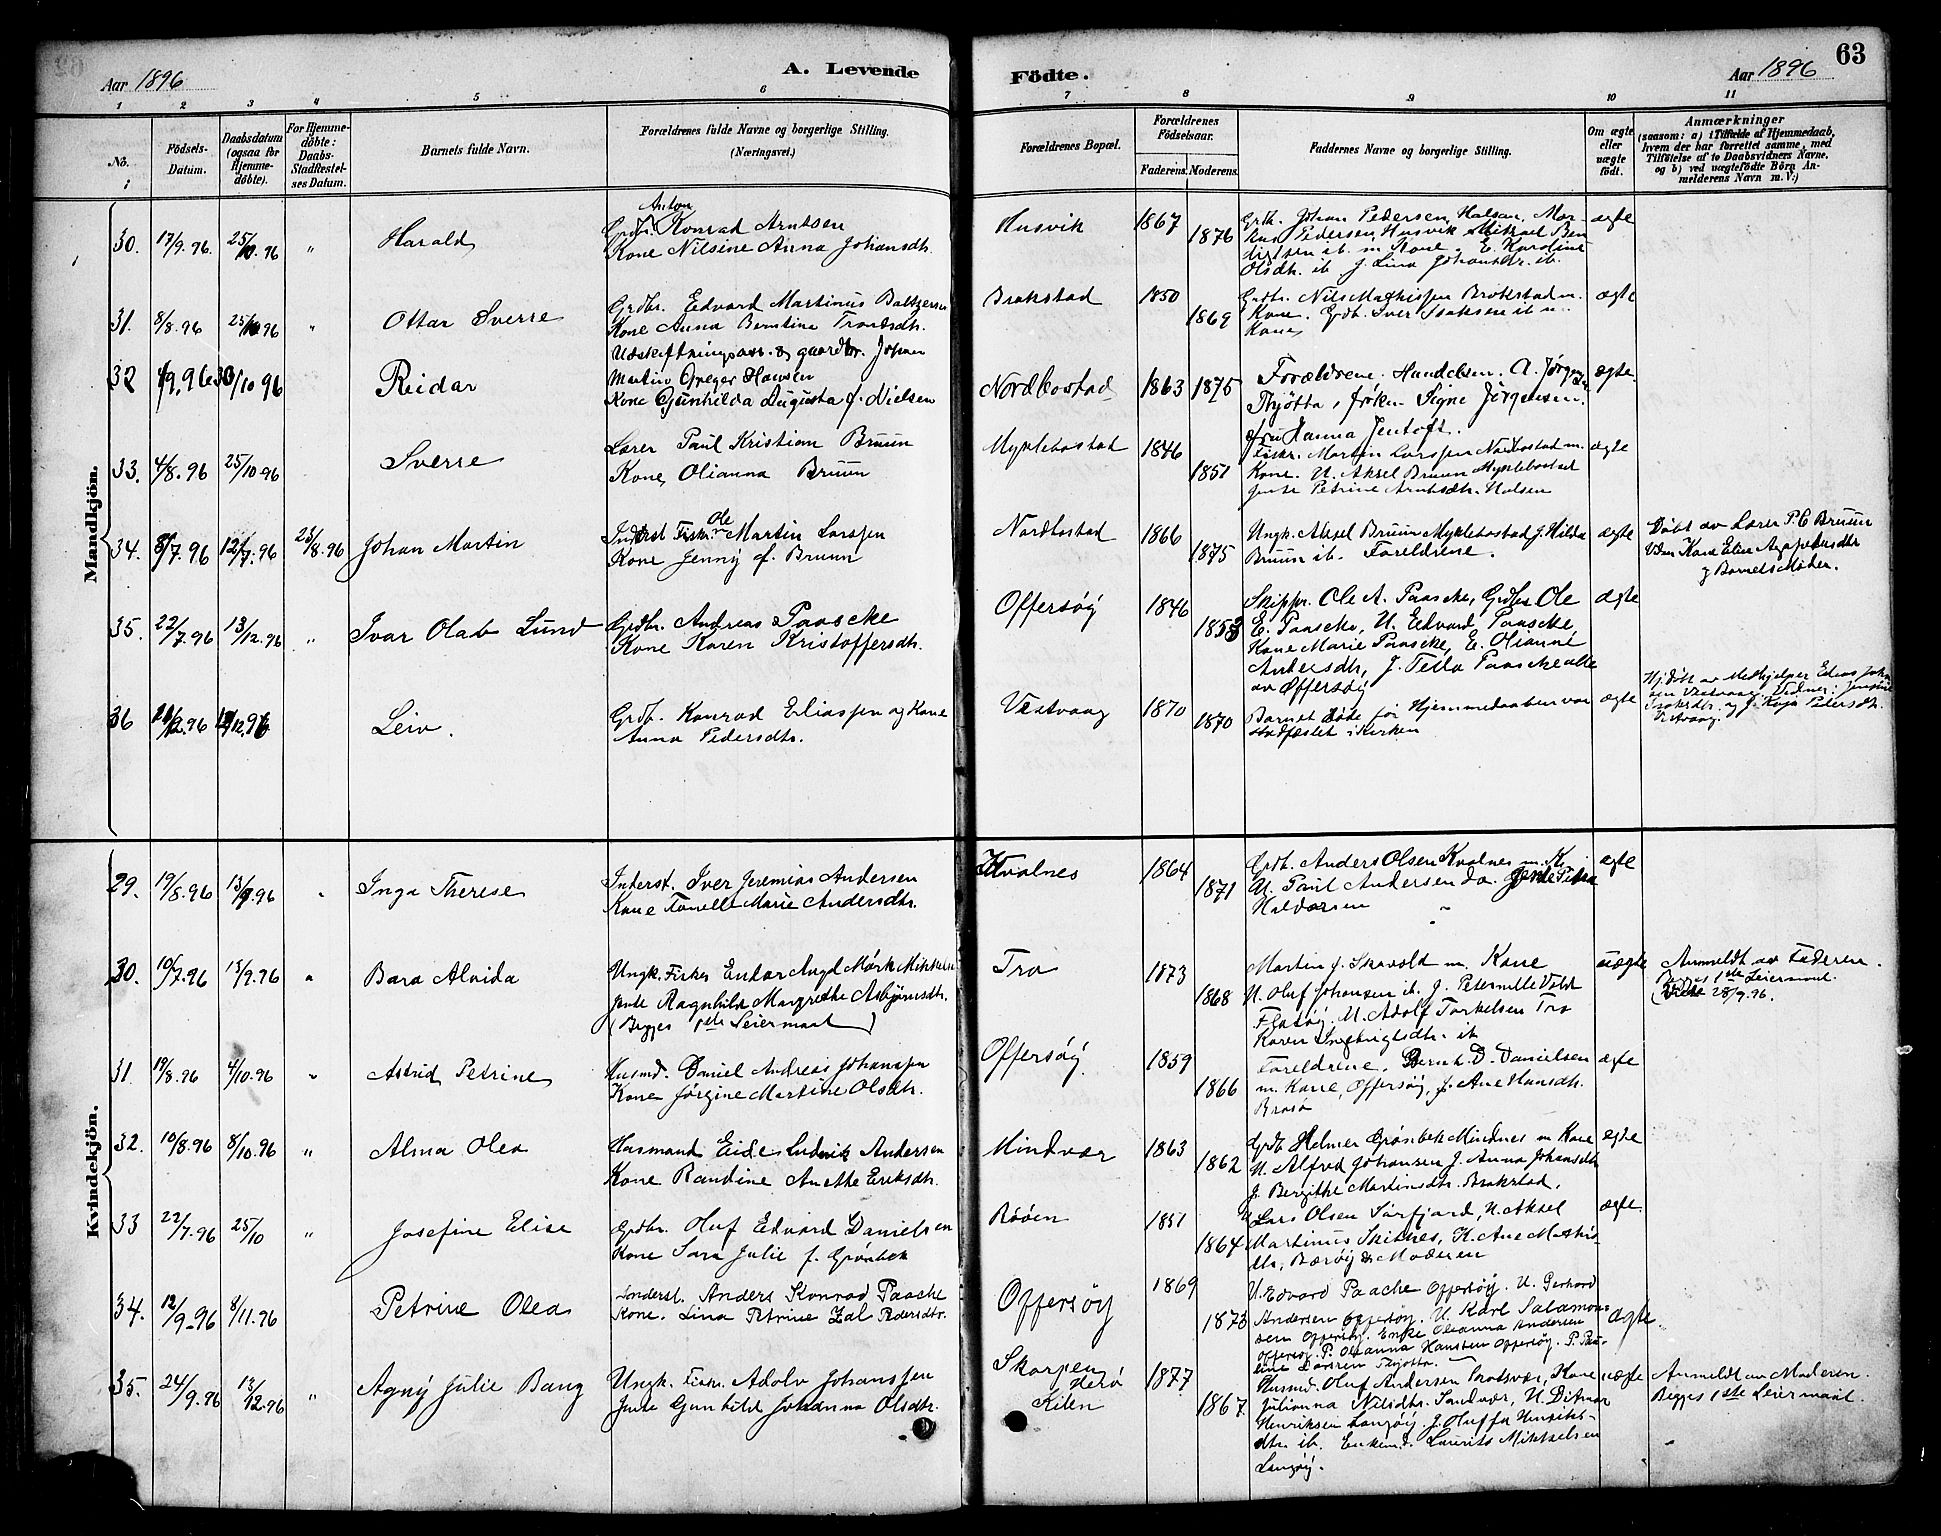 63
Aar 1896
A. Levende
Födte.
Aar 1896
1 2 3 4 5 6 7 8 9 10 11
No.
Födsels-
Datum.
Daabsdatum
(ogsaa för
Hjemme-
döbte).
For Hjemme-
döbte:
Daabs-
Stadfæstel-
ses Datum.
Barnets fulde Navn.
Forældrenes fulde Navne og borgerlige Stilling.
(Næringsvei.)
Forældrenes Bopæl.
Forældrenes
Födselsaar.
Faderens.
Moderens.
Faddernes Navne og borgerlige Stilling.
Om ægte
eller
uægte
födt.
Anmærkninger
(saasom: a) i Tilfælde af Hjemmedaab,
hvem der har forrettet samme, med
Tilföielse af to Daabsvidners Navne,
og b) ved uægtefödte Börn An-
melderens Navn m. V.)
Mandkjön.
30. 17/9.96. 25/10.96 " Harald
Anton
Grdbr. Konrad Arntsen
Kone Nilsine Anna Johansdtr.
Husvik 1867 1876
Grdb. Johan Pedersen Halsan, Mar-
kus Pedersen Husvik Mikael Ben
digtsen ib. m Kone. E. Kardine
Olsdtr. ib. J. Lina Johansdr. ib.
ægte
31. 8/8.96 25/10 96 " Ottar Sverre
Grdbr. Edvard Martinus Baltzersen
Kone Anna Berntine
Brakstad 1850 1869
Grdbr. Nils Mathissen Brakstad m.
Kone. Grdb. Iver Isaksen ib m.
Kone
ægte
32 30/10 96 Reidar
Udskiftningsass. & gaardbr. Johan
Martin Greger Hansen
Kone Gunhilda Augusta f. Nielsen
Nordbostad 1863 1875
Forældrene. Handelsm. A. Jörgensen
Thjötta, fröken Signe Jörgensen.
fru Hanna Jentoft.
ægte.
33. 4/8.96 25/10 96 Sverre
Lærer Paul Kristian Bruun
Kone Olianna Bruun
Myklebostad 1846 1851
Fiskr. Martin Larssen Nordbostad m.
Kone. U. Aksel Bruun Myklebostad
Jente Petrine Arntsdtr. Halsen
ægte
34. 8/7 96 12/7.96 23/8.96 Johan Martin
Inderst Fiskr. Ole Martin Larssen
Kone Jenny f. Bruun
Nordbostad 1866 1875
Ungk. Aksel Bruun Myklebostad J. Hilda
Bruun ib. Foreldrene.
ægte
Döbt av Lærer P. C Bruun
Vidn Kone Elen
g Barnets Moder.
35. 22/7.96 13/12.96 " Ivar Olab Lund
Grdbr. Andreas Paascke
Kone Karen Kristoffersdtr.
Offersöy 1846 1853
Skippr. Ole A. Paascke, Grdbr Ole
E. Paascke, U. Edvard Paascke
Kone Marie Paascke, E. Olianne
Andersdtr, J. Tella Paascke alle
av Offersöy
ægte
36 12.96 Leiv.
Grdb. Konrad Eliassen og Kone
Anna Pedersdtr.
Vestvaag 1870 1870
Barnet döde för Hjemmedaaben var
stadfæstet i Kirken
ægte
Hj.döbt av Medhjelper Edias Johan
sen Vestvaag. Vidner:
Isaksdtr. og J. Kaja Pedersdtr.
Vestvaag.
Kvindekjön.
29. 19/8.96 13/9.96 " Inga Therese
Inderst. Iver Jeremias Andersen
Kone Tonelle Marie Andersdtr.
Kvalnes 1864 1871
Grdb. Anders Olsen Kvalnes m. K.
U. Paul Andersen do. Jente Petra
Haldorsen
ægte
30. 19/7.96 13/9.96 " Bara Alvida
Ungk. Fisker Enkar Angel Mörk Mikkelsen
Jente Ragnhild Margrethe Asbjörnsdtr.
(Begges 1ste Leiermaal)
Tro 1873 1868
Martin J. Skavold m. Kone
U. Oluf Johansen ib. J. Peternelle Vold
Flatöy. U. Adolf Torkelsen Tro
Karen Ingebrigtsdtr. ib
uægte
Anmeldt av Faderen.
Begges 1ste Leiermaal.
(Viede 28/9.96.
31. 19/8.96 4/10.96 " Astrid Petrine
Husmd. Daniel Andreas Johanssen
Kone Jörgine Martine Olsdtr.
Offersöy. 1859 1866
Foreldrene, Bernh. D. Danielsen
m. Kone, Offersöy, J. Ane Hansdtr.
Brasö
ægte
32. 10/8.96 8/10.96 " Alma Olea
Husmand Eide Ludvik Andersen
Kone Randine Anethe Eriksdtr.
Mindvær 1863 1862
Grdb Helmer Grönbek Mindnes m Kone
U. Alfred Johansen J. Anna Johansdtr
J. Bergithe Martinsdtr. Brakstad.
egte
33 22/7.96 25/10 " Josefine Elise
Grdbr. Oluf Edvard Danielsen
Kone Sara Julie f. Grönbek
Rööen 1851 1864
G Lars Olsen Sörfjord, U. Aksel
Martinus Skitnes, K. Ane Mathis-
dtr. Bæröy & Moderen
ægte.
34. 12/9.96 8/11.96 Petrine Olea
Inderst. Anders Konrad Paasche
Kone. Lina Petrine Zal Pedersdtr.
Offersöy 1869 1873
U. Edvard Paache Offersöy. U. Gerhard
Andersen Offersöy. U. Karl Salamon-
sen Offersöy. Enke Olianna Andersen
Offersöy. P. Oleanna Hansten Offersöy. P. Pau-
line Dorsren Thjotta.
ægte.
35. 24/9.96 13/12.96 " Agny Julie Bang
Ungk. Fiskr. Adolv Johanssen
Jente Gunhild Johanna Olsdtr.
Skarpen
Herö
Kilen
1877 1867.
Husmd. Oluf Andersen Brotsvær, Kone
Julianna Nilsdtr. Sandvær, U. Ditmar
Henriksen Langöy. J. Oluffa Henriks-
dtr. ib. Enkem. Laurits Mikkelsen
Langöy.
uægte
Anmeldt av Moderen.
Begges 1ste Leiermaal.